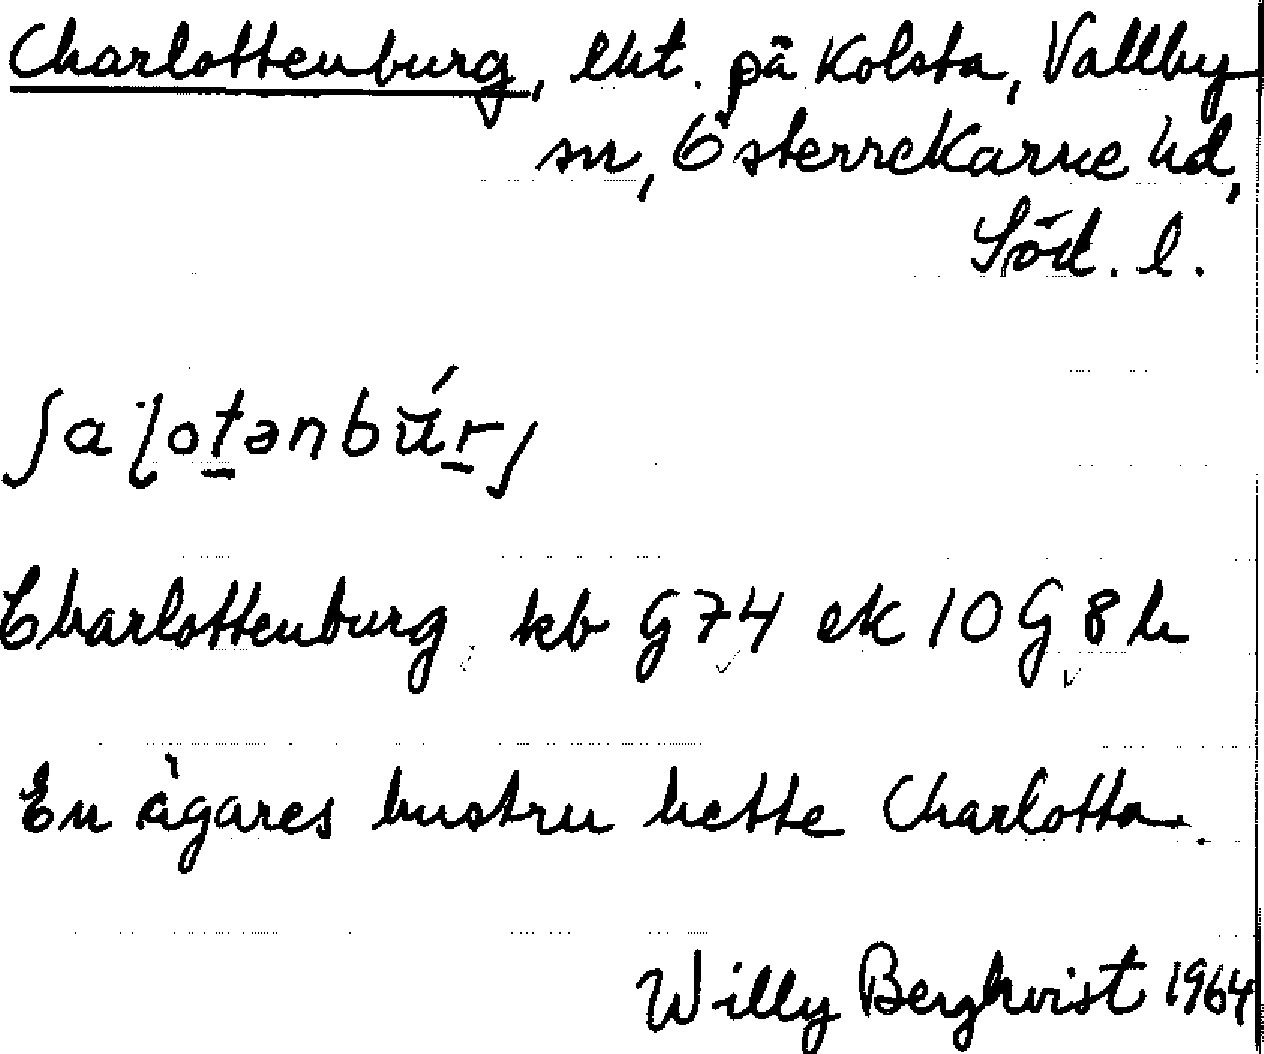 Charlottenburg, lht. på Kolsta, Vallby
sn, Österrekarne hd,
Söd. l.
Charlottenburg kb G74 ek 10G 8h
En ägares hustru hette Charlotta.
Willy Berghvist 1964